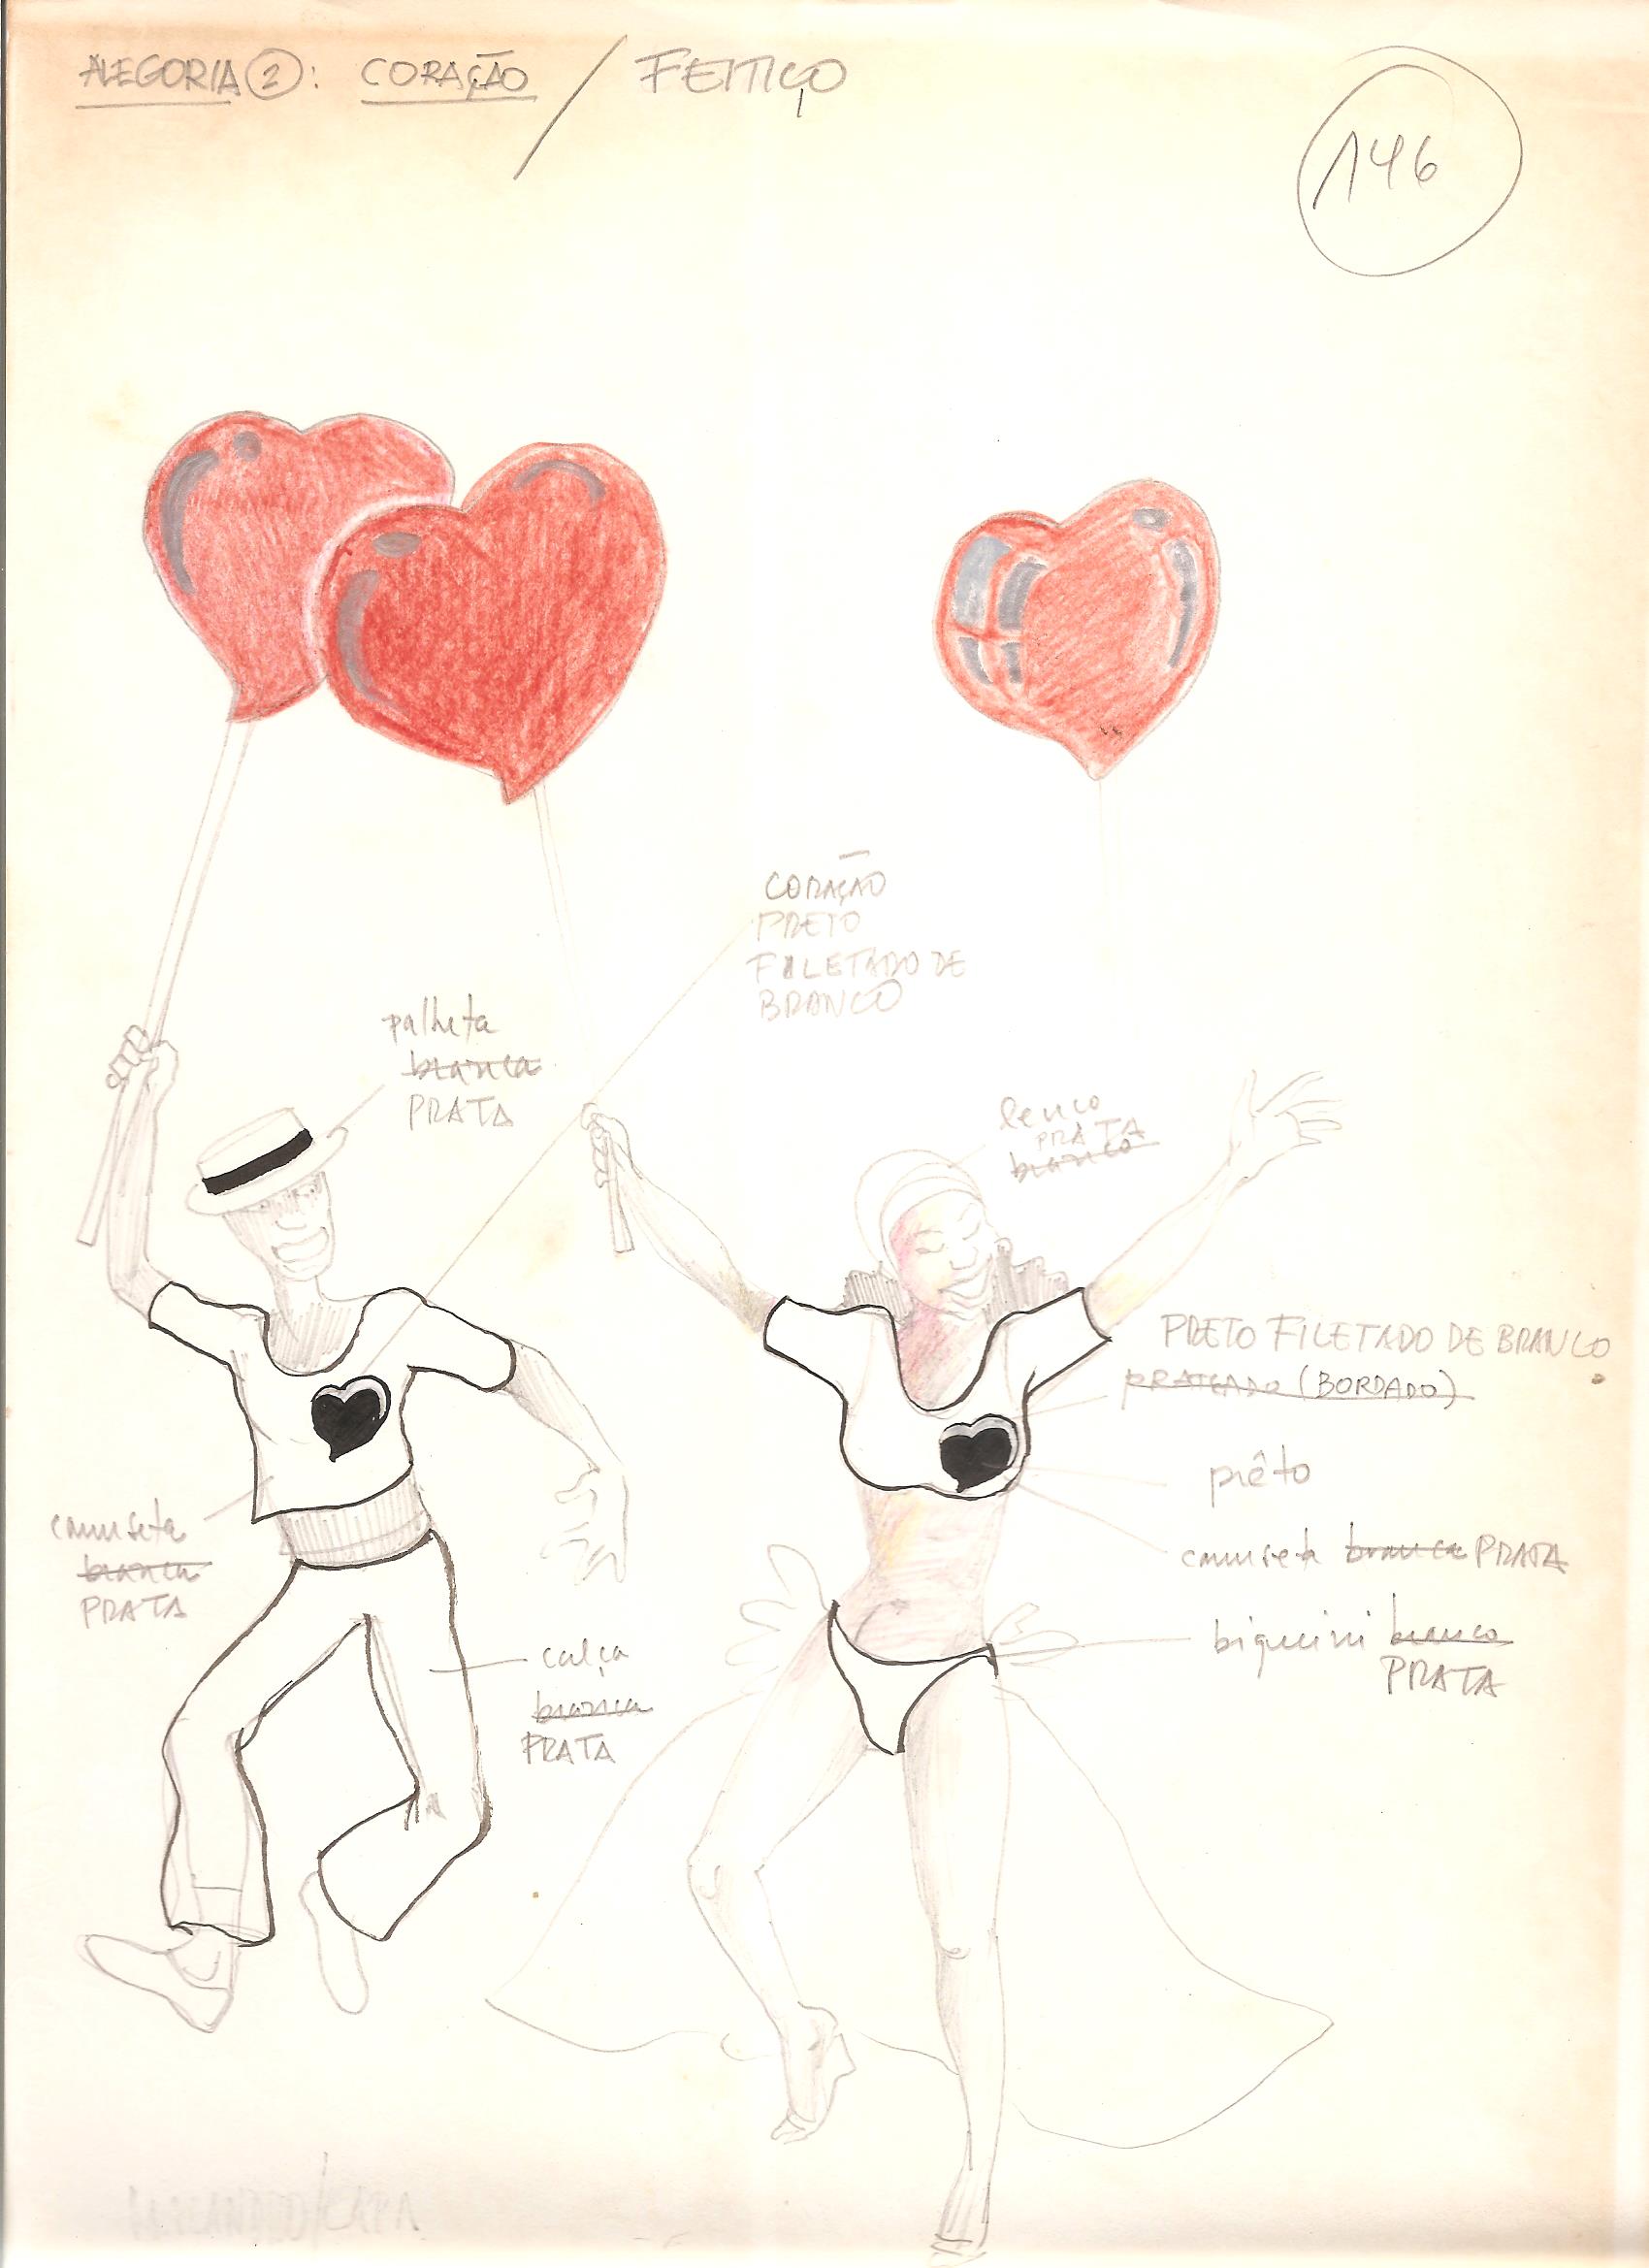 ALEGORIA 2: CORAÇÃO / FEITIÇO
146
CORAÇÃO
PRETO
FILETADO DE
BRANCO
palheta
branca
PRATA
lenço
PRATA
branco
PRETO FILETADO DE BRANCO
prateado (BORDADO)
prêto
camiseta branca PRATA
biquini branco
PRATA
camiseta
branca
PRATA
calça
branca
PRATA